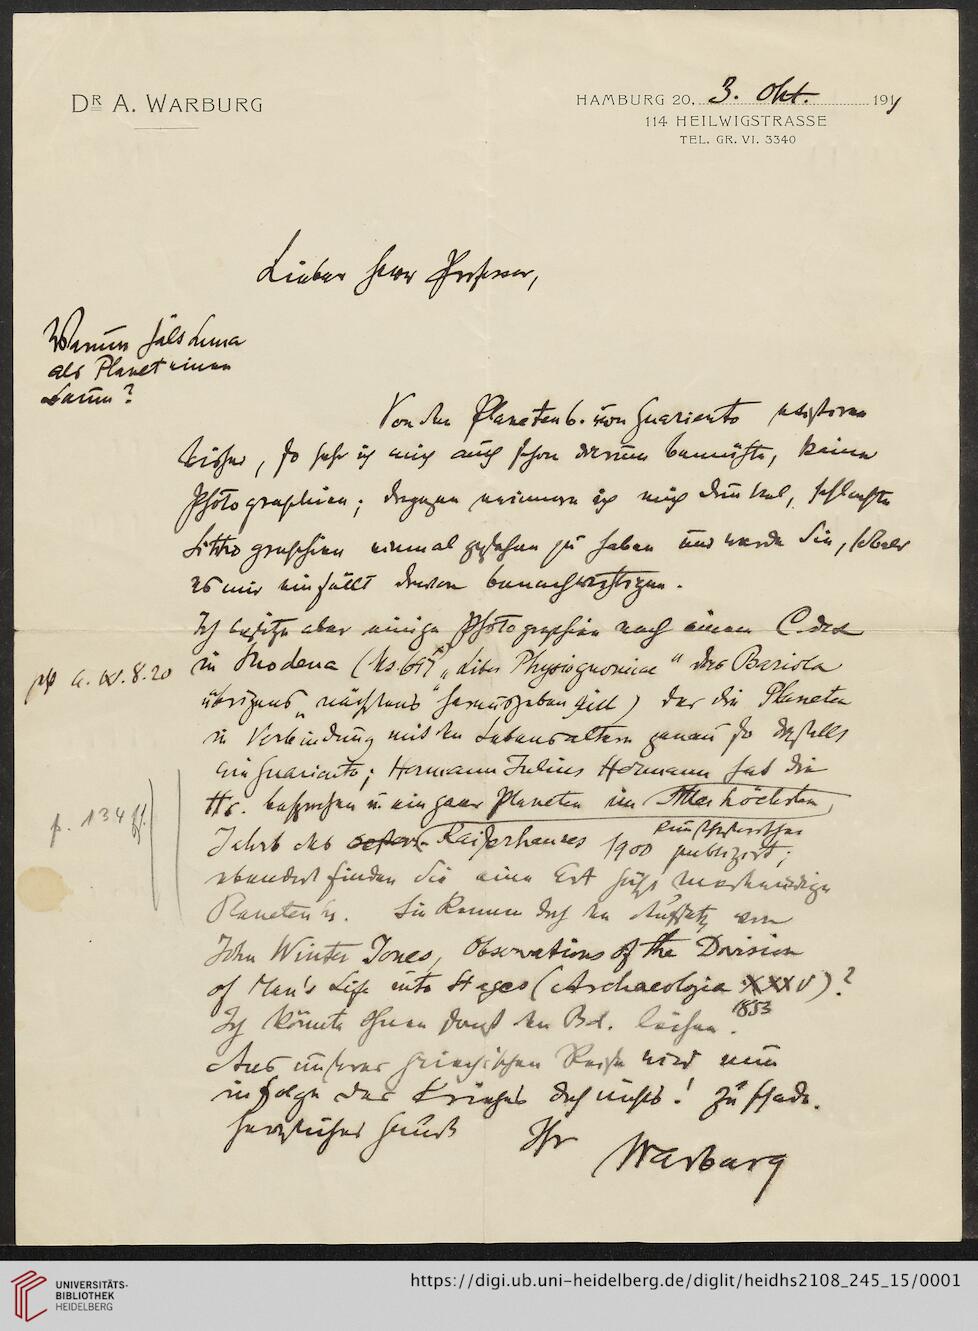 DR A. WARBURG
HAMBURG 20, 3. Okt. 1911
114 HEILWIGSTRASSE
TEL. GR. VI. 3340
Lieber Herr Professor,
Warum hält Luna
als Planet einen
Baum?
Von den Planetenb. von Guariento existiren
bisher, so sehr ich mich auch schon darum bemühte, keine
Photographien; dagegen erinnere ich mich dunkel, schlechte
Lithographien einmal gesehen zu haben und werde Sie, sobald
es mir einfällt davon benachrichtigen.
Ich besitze aber einige Photographien nach einem Codex
in Modena (Ms. 697 "Liber Physiognomiae" das Bariola
übrigens "nächstens" herausgeben will) der die Planeten
in Verbindung mit den Lebensaltern genau so darstellt
wie Guariento; Hermann Julius Hermann hat die
Hs. besprochen u ein paar Planeten im Allerhöchsten,
Jahrb des Kaiserhauses 1900 publizirt;
kunsthistorischen
ebendort finden Sie eine Art höchst merkwürdige
Planeten. Sie kennen doch den Aufsatz von
John Winter Jones, Observations of the Division
of Man's Life into Stages (Archaeologia XXXV)?
1853
Ich könnte Ihnen sonst den Bd. leihen.
Aus unserer griechischen Reise wird nun
infolge des Krieges doch nichts! Zu schade.
Herzlichen Gruß Ihr Warburg
p. 134 ff.
UNIVERSITÄTS-
BIBLIOTHEK
HEIDELBERG
https://digi.ub.uni-heidelberg.de/diglit/heidhs2108_245_15/0001